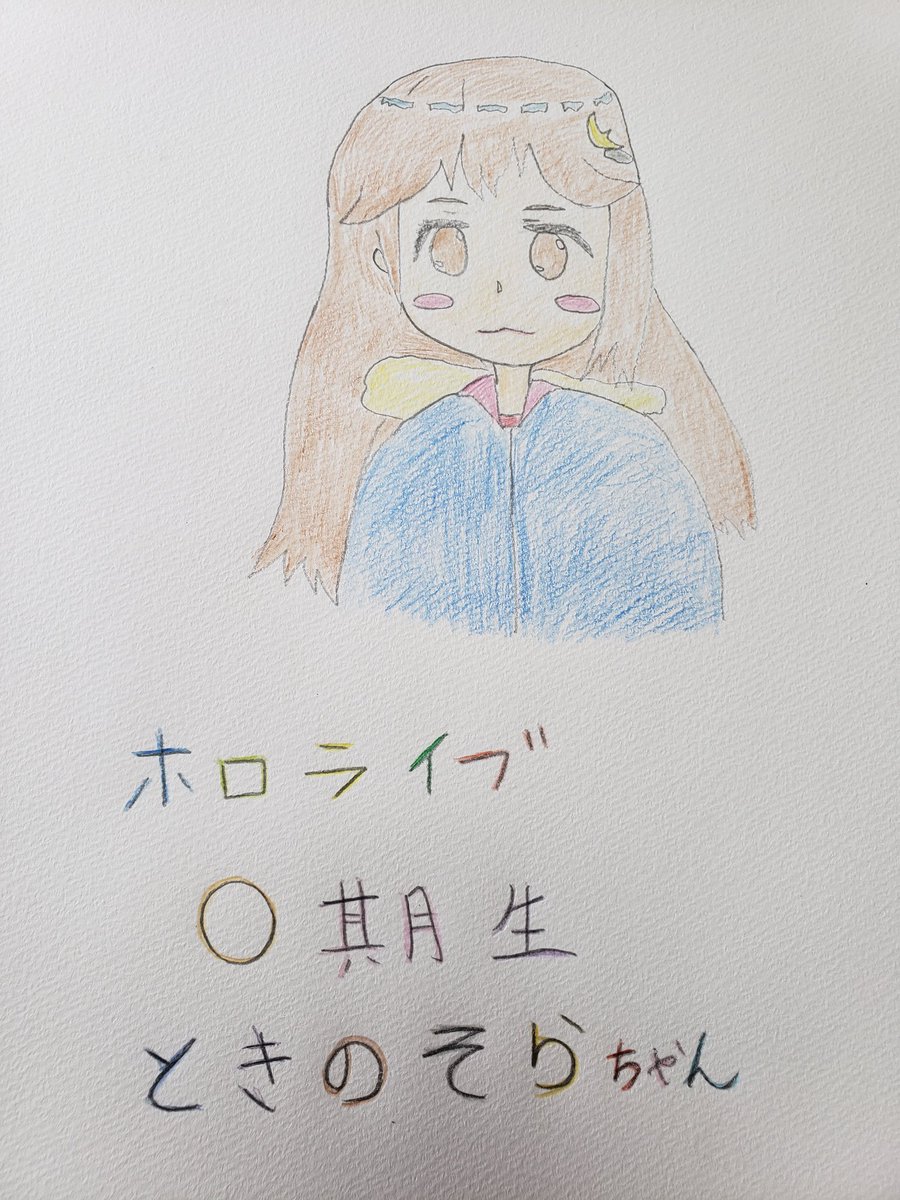 ホロライブ
〇期生
ときのそらちゃん